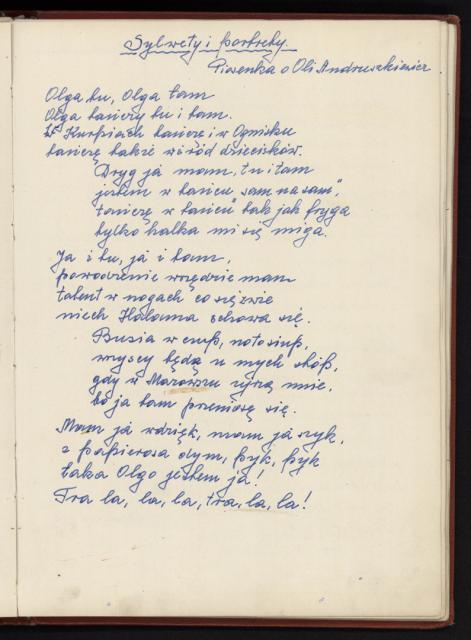 Sylwety i portrety.
Piosenka o Oli Andruszkiewicz
Olga tu, Olga tam
Olga tańczy tu i tam.
W Kurpiach tańczę i w Ognisku
tańczę także wśród dziecisków.
Dryg ja mam, tu i tam
jestem w tańcu "sam na sam",
tańczę w tańcu tak jak fryga
tylko halka mi się miga.
Ja i tu, ja i tam,
powodzenie wszędzie mam
talent w nogach co się zwie
niech Halama schowa się.
Busia w cmuß, noto siup,
wszyscy będą u mych stóp,
gdy w Mazowszu ujrzą mnie,
bo ja tam przeniosę się.
Mam ja wdzięk, mam ja szyk,
z papierosa dym, pyk, pyk
taka Olgo jestem ja!
Tra la, la, la, tra, la, la!